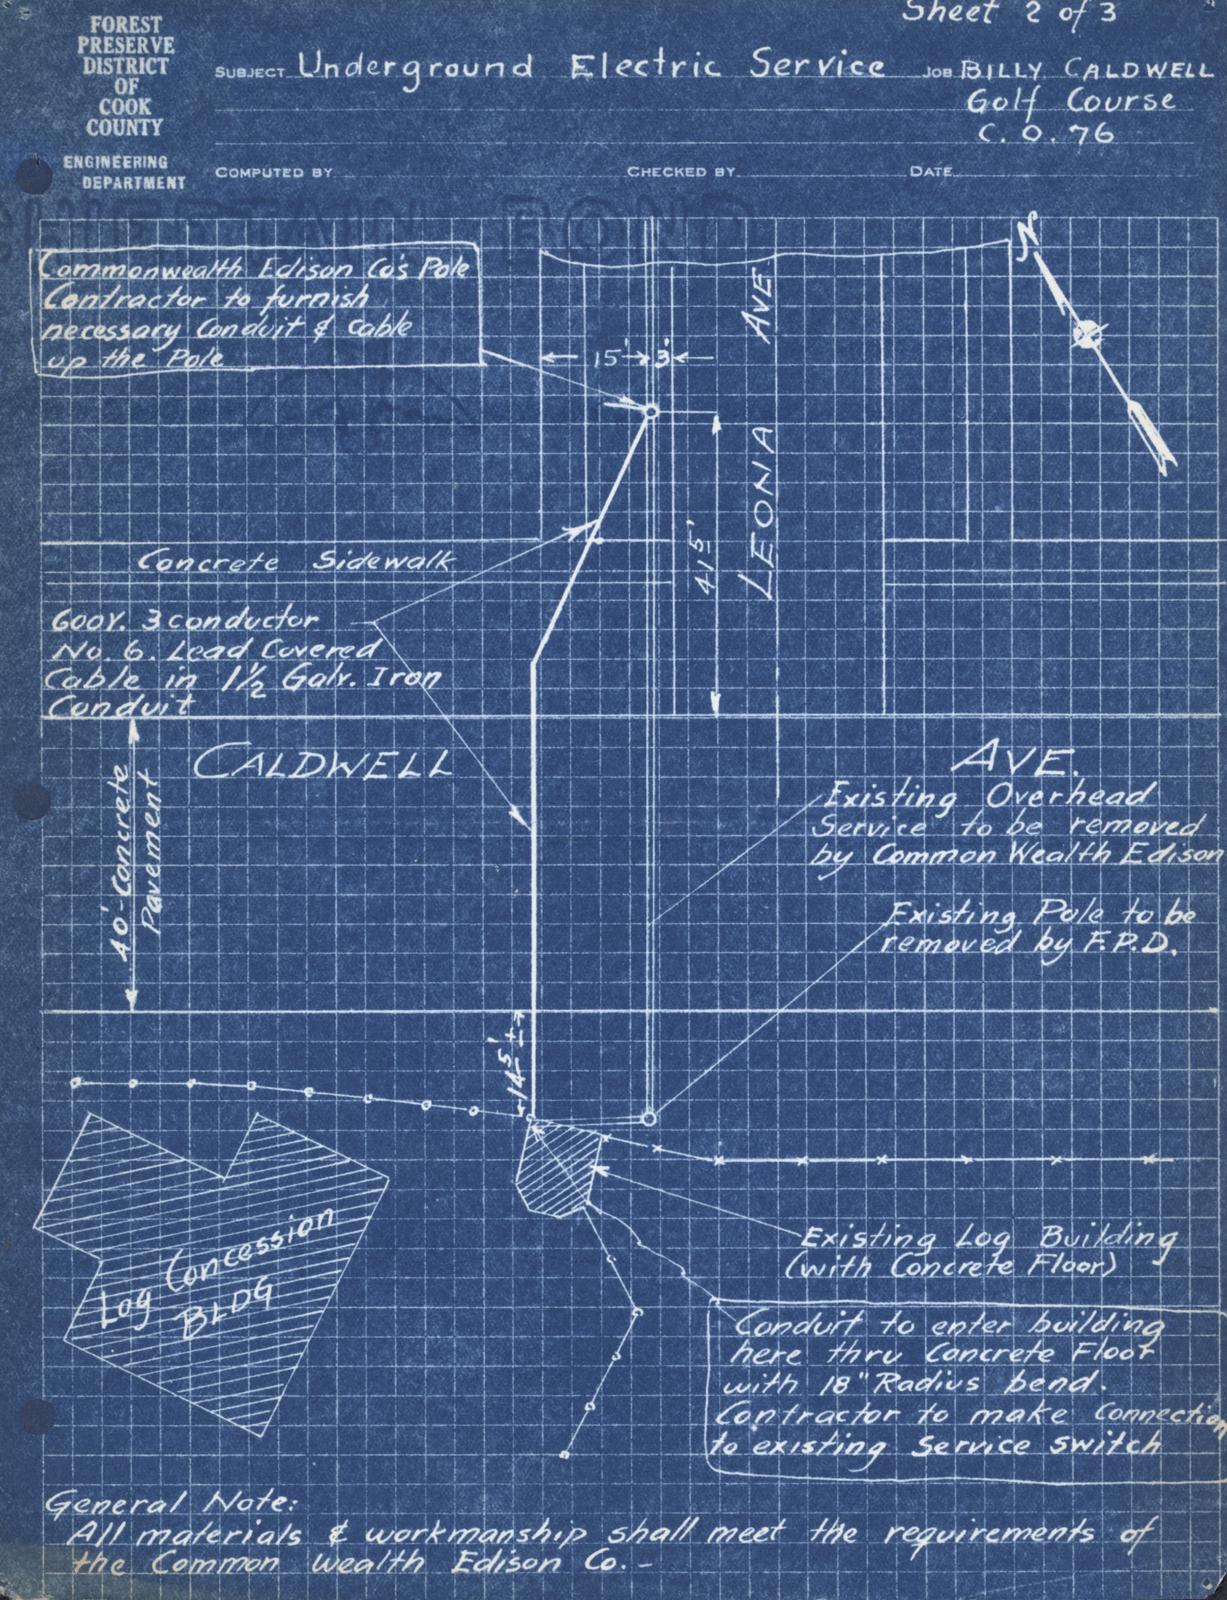 Sheet 2 of 3
FOREST
PRESERVE
DISTRICT
OF
COOK
COUNTY
ENGINEERING
DEPARTMENT
SUBJECT Underground Electric Service
JOB BILLY CALDWELL
Golf Course
C.O. 76
COMPUTED BY
CHECKED BY
DATE
BOND
Commonwealth Edison Co's Pole
Contractor to furnish
necessary Conduit & Cable
up the Pole
N
15'
3'
LEONA AVE
41.5'
Concrete Sidewalk
600V. 3 conductor
No. 6. Lead Covered
Cable in 1½ Galv. Iron
Conduit
CALDWELL AVE.
40'-Concrete
Pavement
Existing Overhead
Service to be removed
by Common Wealth Edison
Existing Pole to be
removed by F.P.D.
14.5' ±
Log Concession
BLDG
Existing Log Building
(with Concrete Floor)
Conduit to enter building
here thru Concrete Floor
with 18" Radius bend.
Contractor to make Connection
to existing Service switch
General Note:
All materials & workmanship shall meet the requirements of
the Common Wealth Edison Co. -